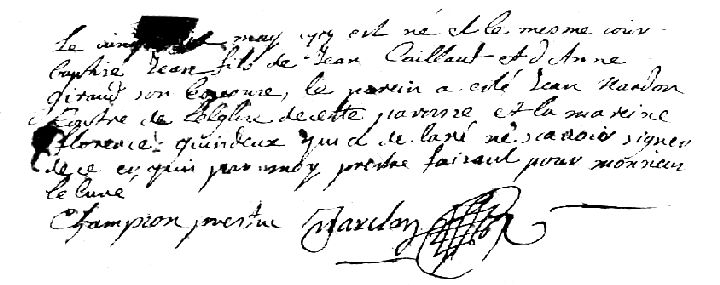 le may 1709 est né et le mesme jour
baptisé Jean fils de Jean Caillaut et d'Anne
Giraud son Epouse, le parein a esté Jean Nardon
de l'Eglise de cette paroisse et la mareine
florence qui a declaré ne scavoir signer
de ce enquis par moy prestre faisant pour monsieur
le Curé
Champion prestre Nardon